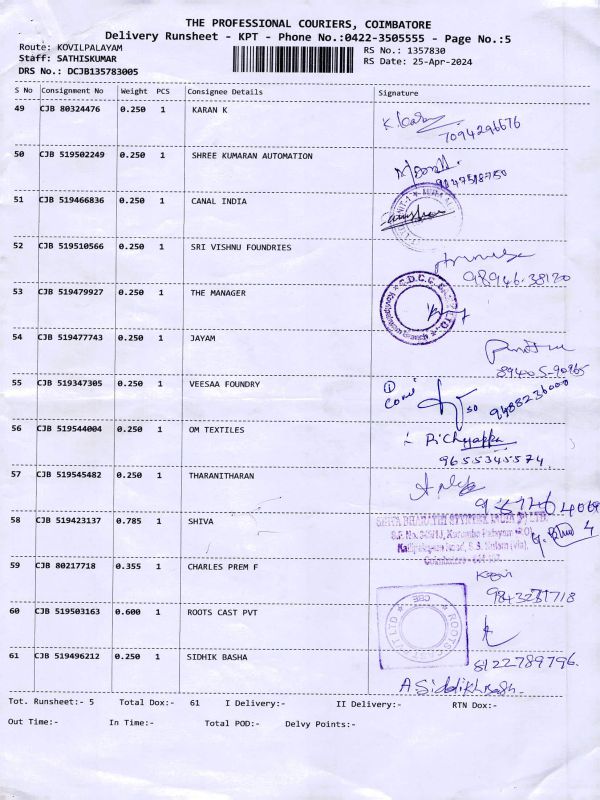 THE PROFESSIONAL COURIERS, COIMBATORE
Delivery Runsheet - KPT - Phone No.:0422-3505555 - Page No.:5
Route: KOVILPALAYAM
RS No.: 1357830
Staff: SATHISKUMAR
RS Date: 25-Apr-2024
DRS No.: DCJB135783005
S No Consignment No Weight PCS Consignee Details Signature
49 CJB 80324476 0.250 1 KARAN K
7094296676
50 CJB 519502249 0.250 1 SHREE KUMARAN AUTOMATION
51 CJB 519466836 0.250 1 CANAL INDIA
52 CJB 519510566 0.250 1 SRI VISHNU FOUNDRIES
98946.38120
53 CJB 519479927 0.250 1 THE MANAGER
Kovilpalayam Branch
54 CJB 519477743 0.250 1 JAYAM
89400 5-90965
55 CJB 519347305 0.250 1 VEESAA FOUNDRY
9488236000
56 CJB 519544004 0.250 1 OM TEXTILES
P.Chiyappa
9655345574
57 CJB 519545482 0.250 1 THARANITHARAN
58 CJB 519423137 0.785 1 SHIVA
59 CJB 80217718 0.355 1 CHARLES PREM F
60 CJB 519503163 0.600 1 ROOTS CAST PVT
ROOTS CAST PVT LTD
CBE
61 CJB 519496212 0.250 1 SIDHIK BASHA
8122789796
A Siddikh Basha
Tot. Runsheet:- 5 Total Dox:- 61 I Delivery:- II Delivery:- RTN Dox:-
Out Time:- In Time:- Total POD:- Delvy Points:-